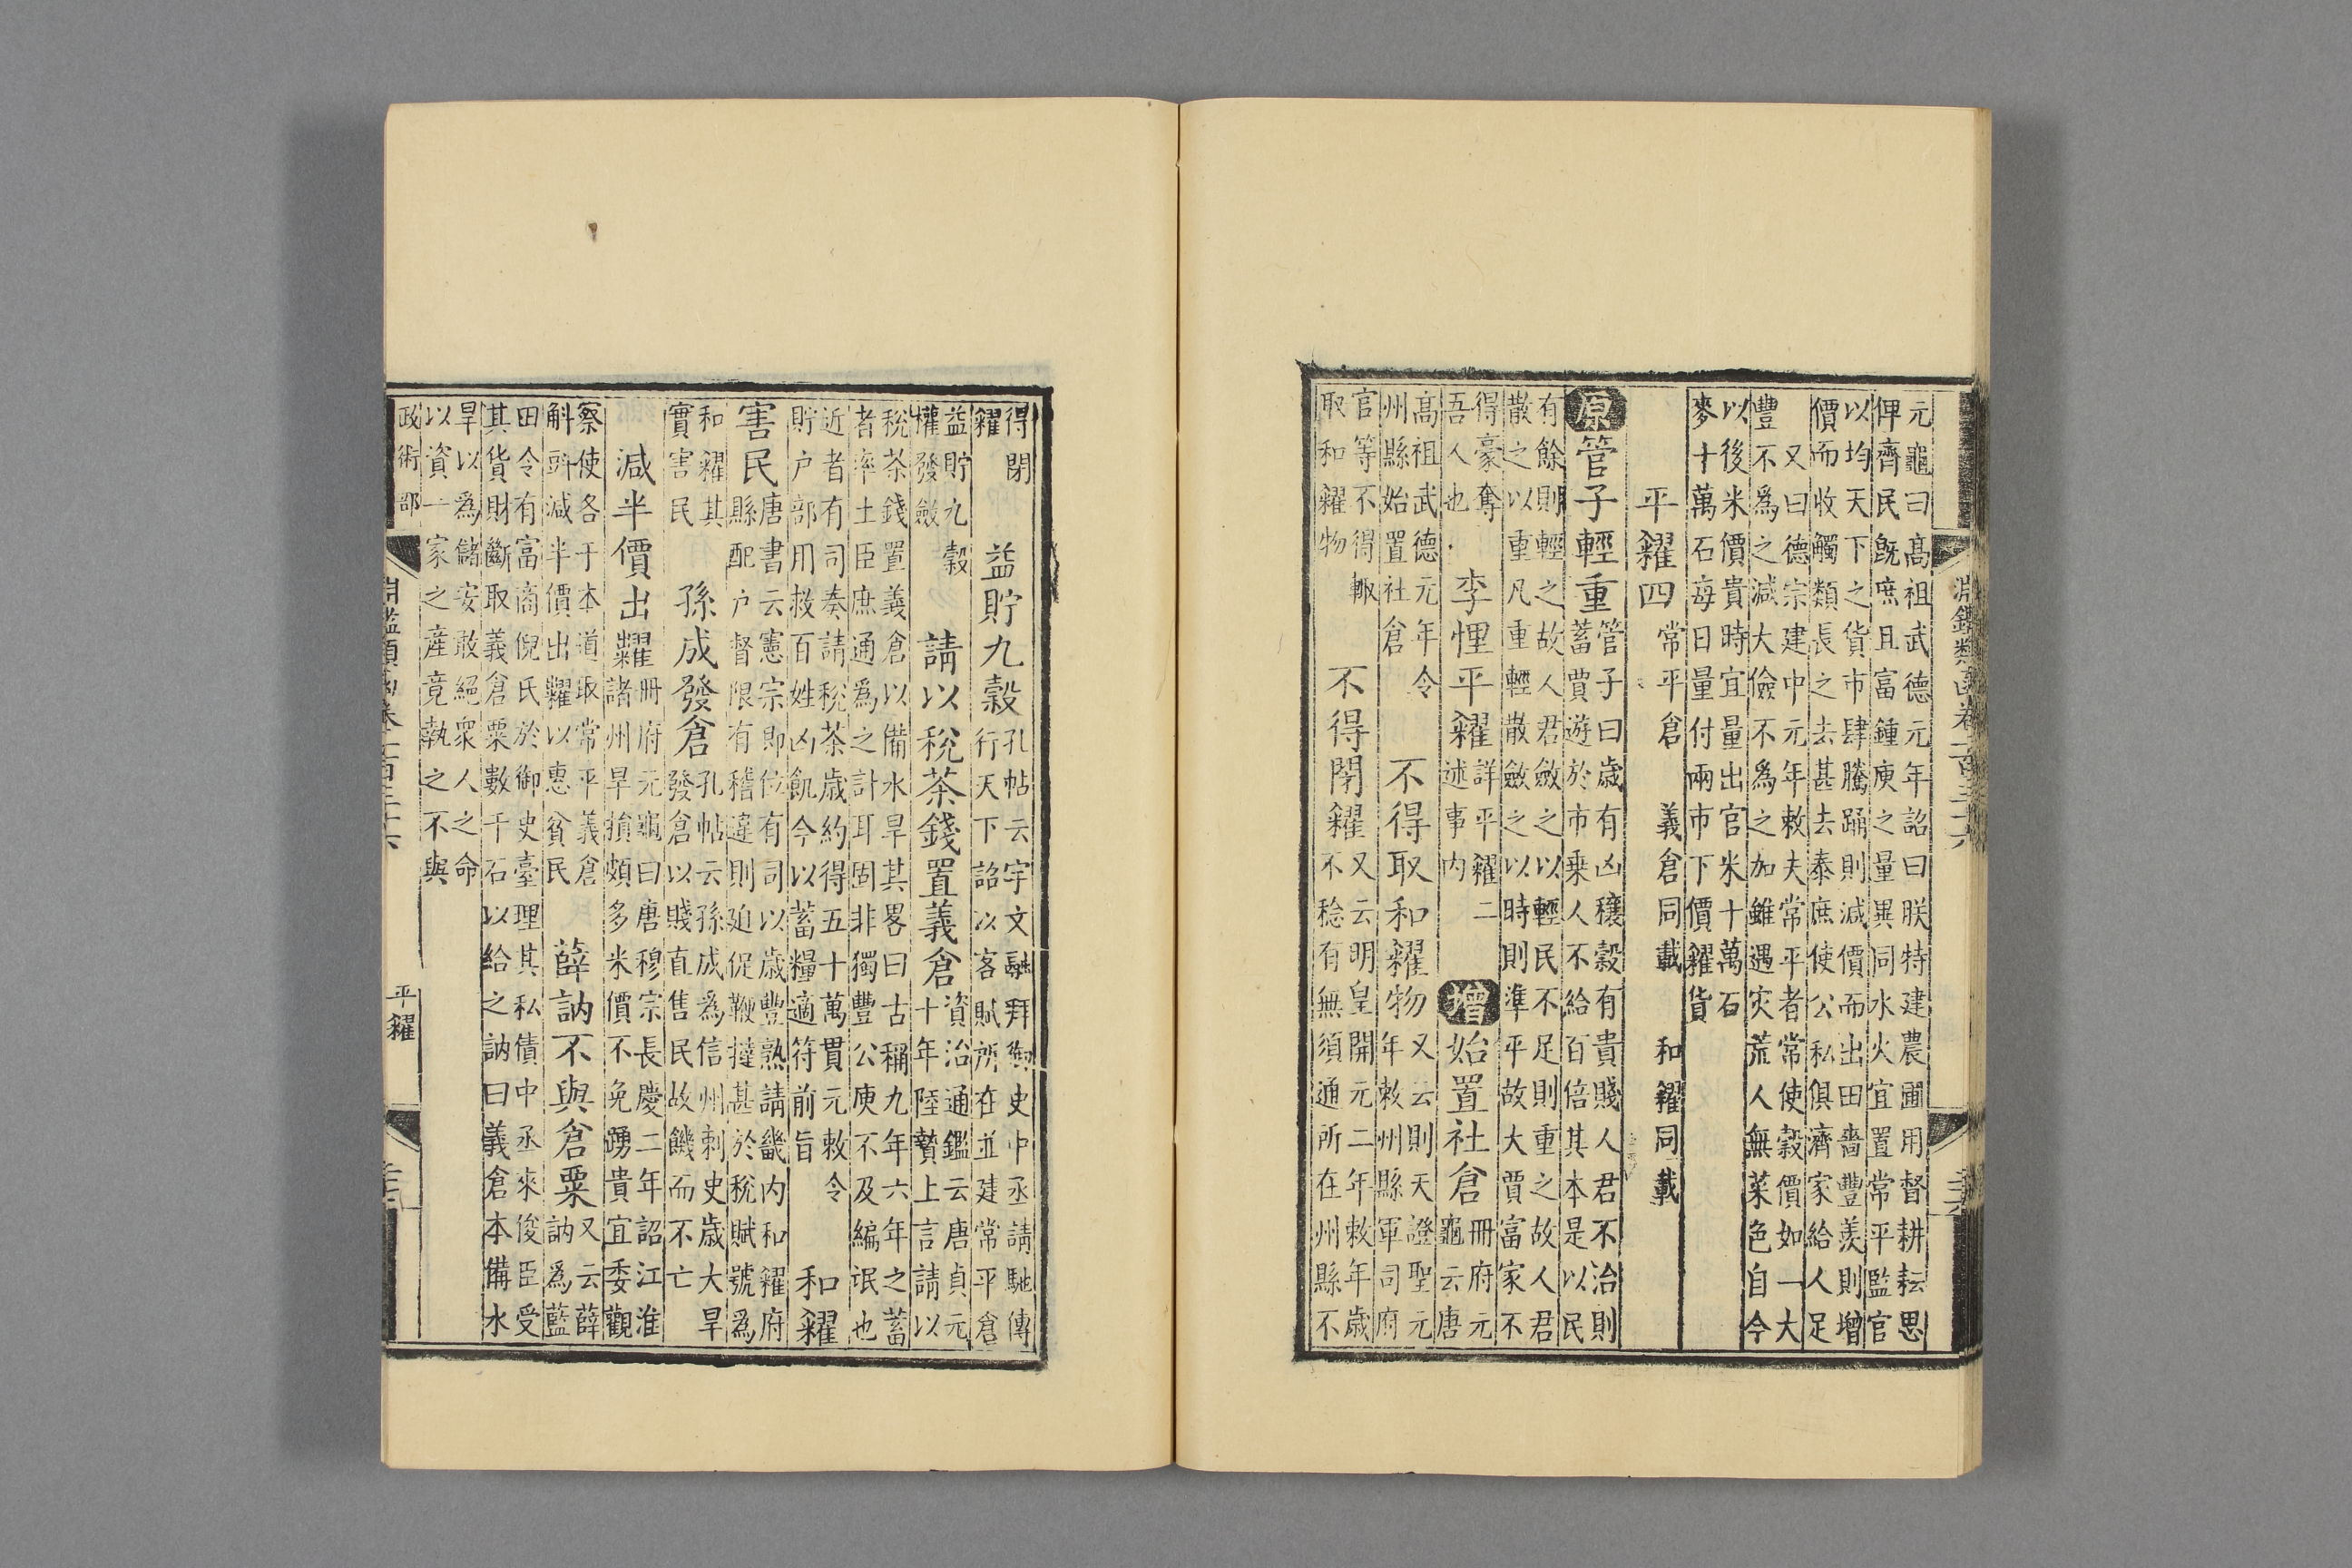 淵鑑類函卷一百三十六
元龜曰高祖武德元年詔曰朕特建農圃用督耕耘思
俾齊民旣庶且富鍾庾之量異同水火宜置常平監官
以均天下之貨市肆騰踊則減價而出田嗇豐羡則增
價而收觸類長之去甚去泰庶使公私俱濟家給人足
又曰德宗建中元年敕夫常平者常使穀價如一大
豐不爲之減大儉不爲之加雖遇灾荒人無菜色自今
以後米價貴時宜量出官米十萬石
麥十萬石每日量付兩市下價糴貨
平糴四 常平倉 義倉同載 和糴同載
原管子輕重
管子曰歲有凶穰穀有貴賤人君不治則
蓄賈遊於市乗人不給百倍其本是以民
有餘則輕之故人君斂之以輕民不足則重之故人君
散之以重凡重輕散斂之以時則準平故大賈富家不
得豪奪
吾人也
李悝平糴
詳平糴二
述事内
增始置社倉
冊府元
龜云唐
高祖武德元年令
州縣始置社倉
不得取和糴物
又云則天證聖元
年敕州縣軍司府
官等不得輙
取和糴物
不得閉糴
又云明皇開元二年敕年歲
不稔有無須通所在州縣不
得閉
糴
益貯九穀
孔帖云宇文融拜御史中丞請馳傳
行天下詔以客賦所在並建常平倉
益貯九穀
權發斂
請以稅茶錢置義倉
資治通鑑云唐貞元
十年陸贄上言請以
稅茶錢置義倉以備水旱其畧曰古稱九年六年之蓄
者率土臣庶通爲之計耳固非獨豐公庾不及編氓也
近者有司奏請稅茶歲約得五十萬貫元敕令
貯户部用救百姓凶飢今以蓄糧適符前旨
和糴
害民
唐書云憲宗即位有司以歲豐熟請畿内和糴府
縣配户督限有稽違則廹促鞭撻甚於稅賦號爲
和糴其
實害民
孫成發倉
孔帖云孫成爲信州刺史歲大旱
發倉以賤直售民故饑而不亡
減半價出糶
冊府元龜曰唐穆宗長慶二年詔江淮
諸州旱損頗多米價不免踴貴宜委觀
察使各于本道取常平義倉
斛㪷減半價出糶以惠貧民
薛訥不與倉粟
又云薛
訥爲藍
田令有富商倪氏於御史臺理其私債中丞來俊臣受
其貨財斷取義倉粟數千石以給之訥曰義倉本備水
旱以爲儲安敢絕衆人之命
以資一家之産竟執之不與
政術部
平糴